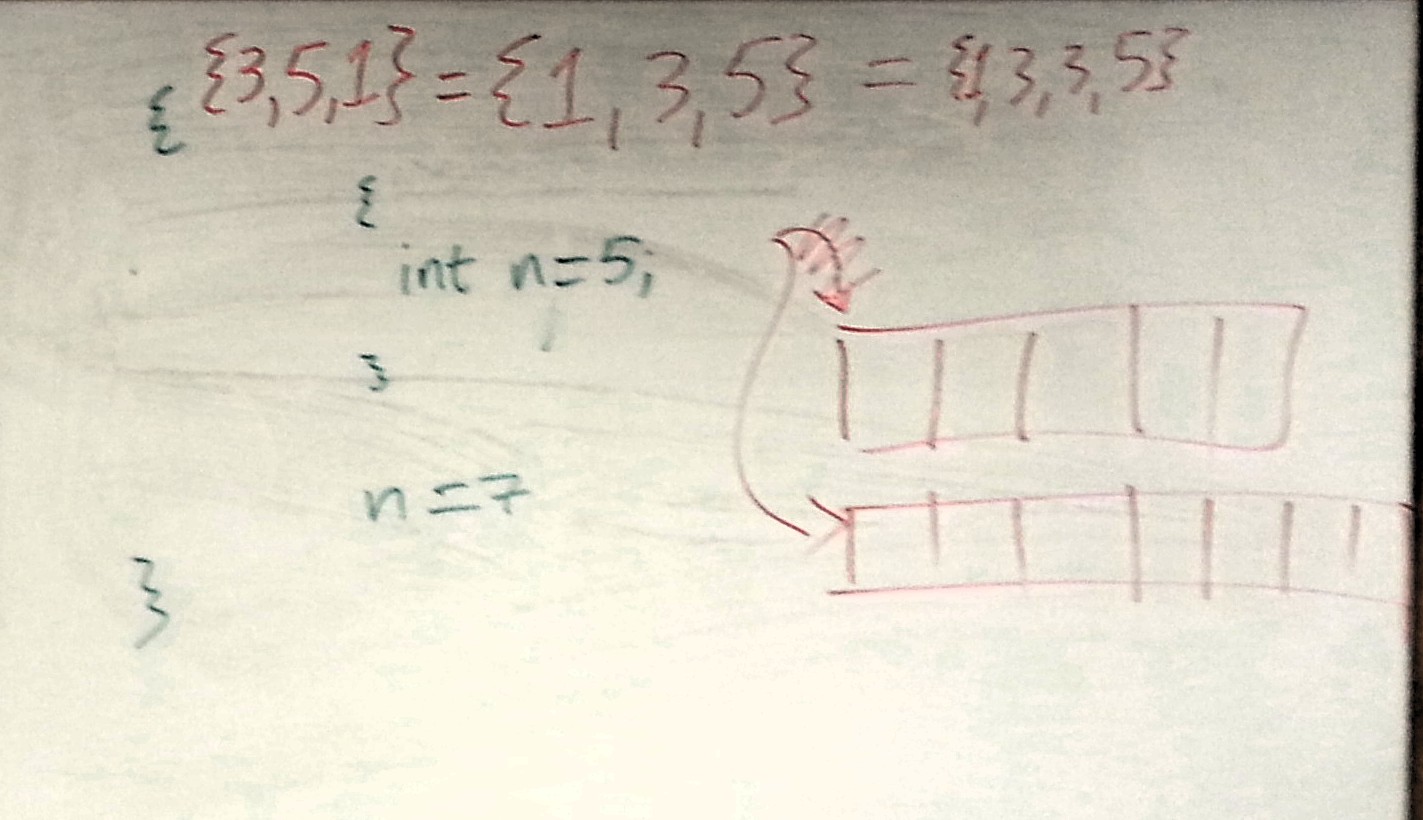 {3,5,1} = {1,3,5} = {1,3,3,5}
{
{
int n=5;
}
n=7
}